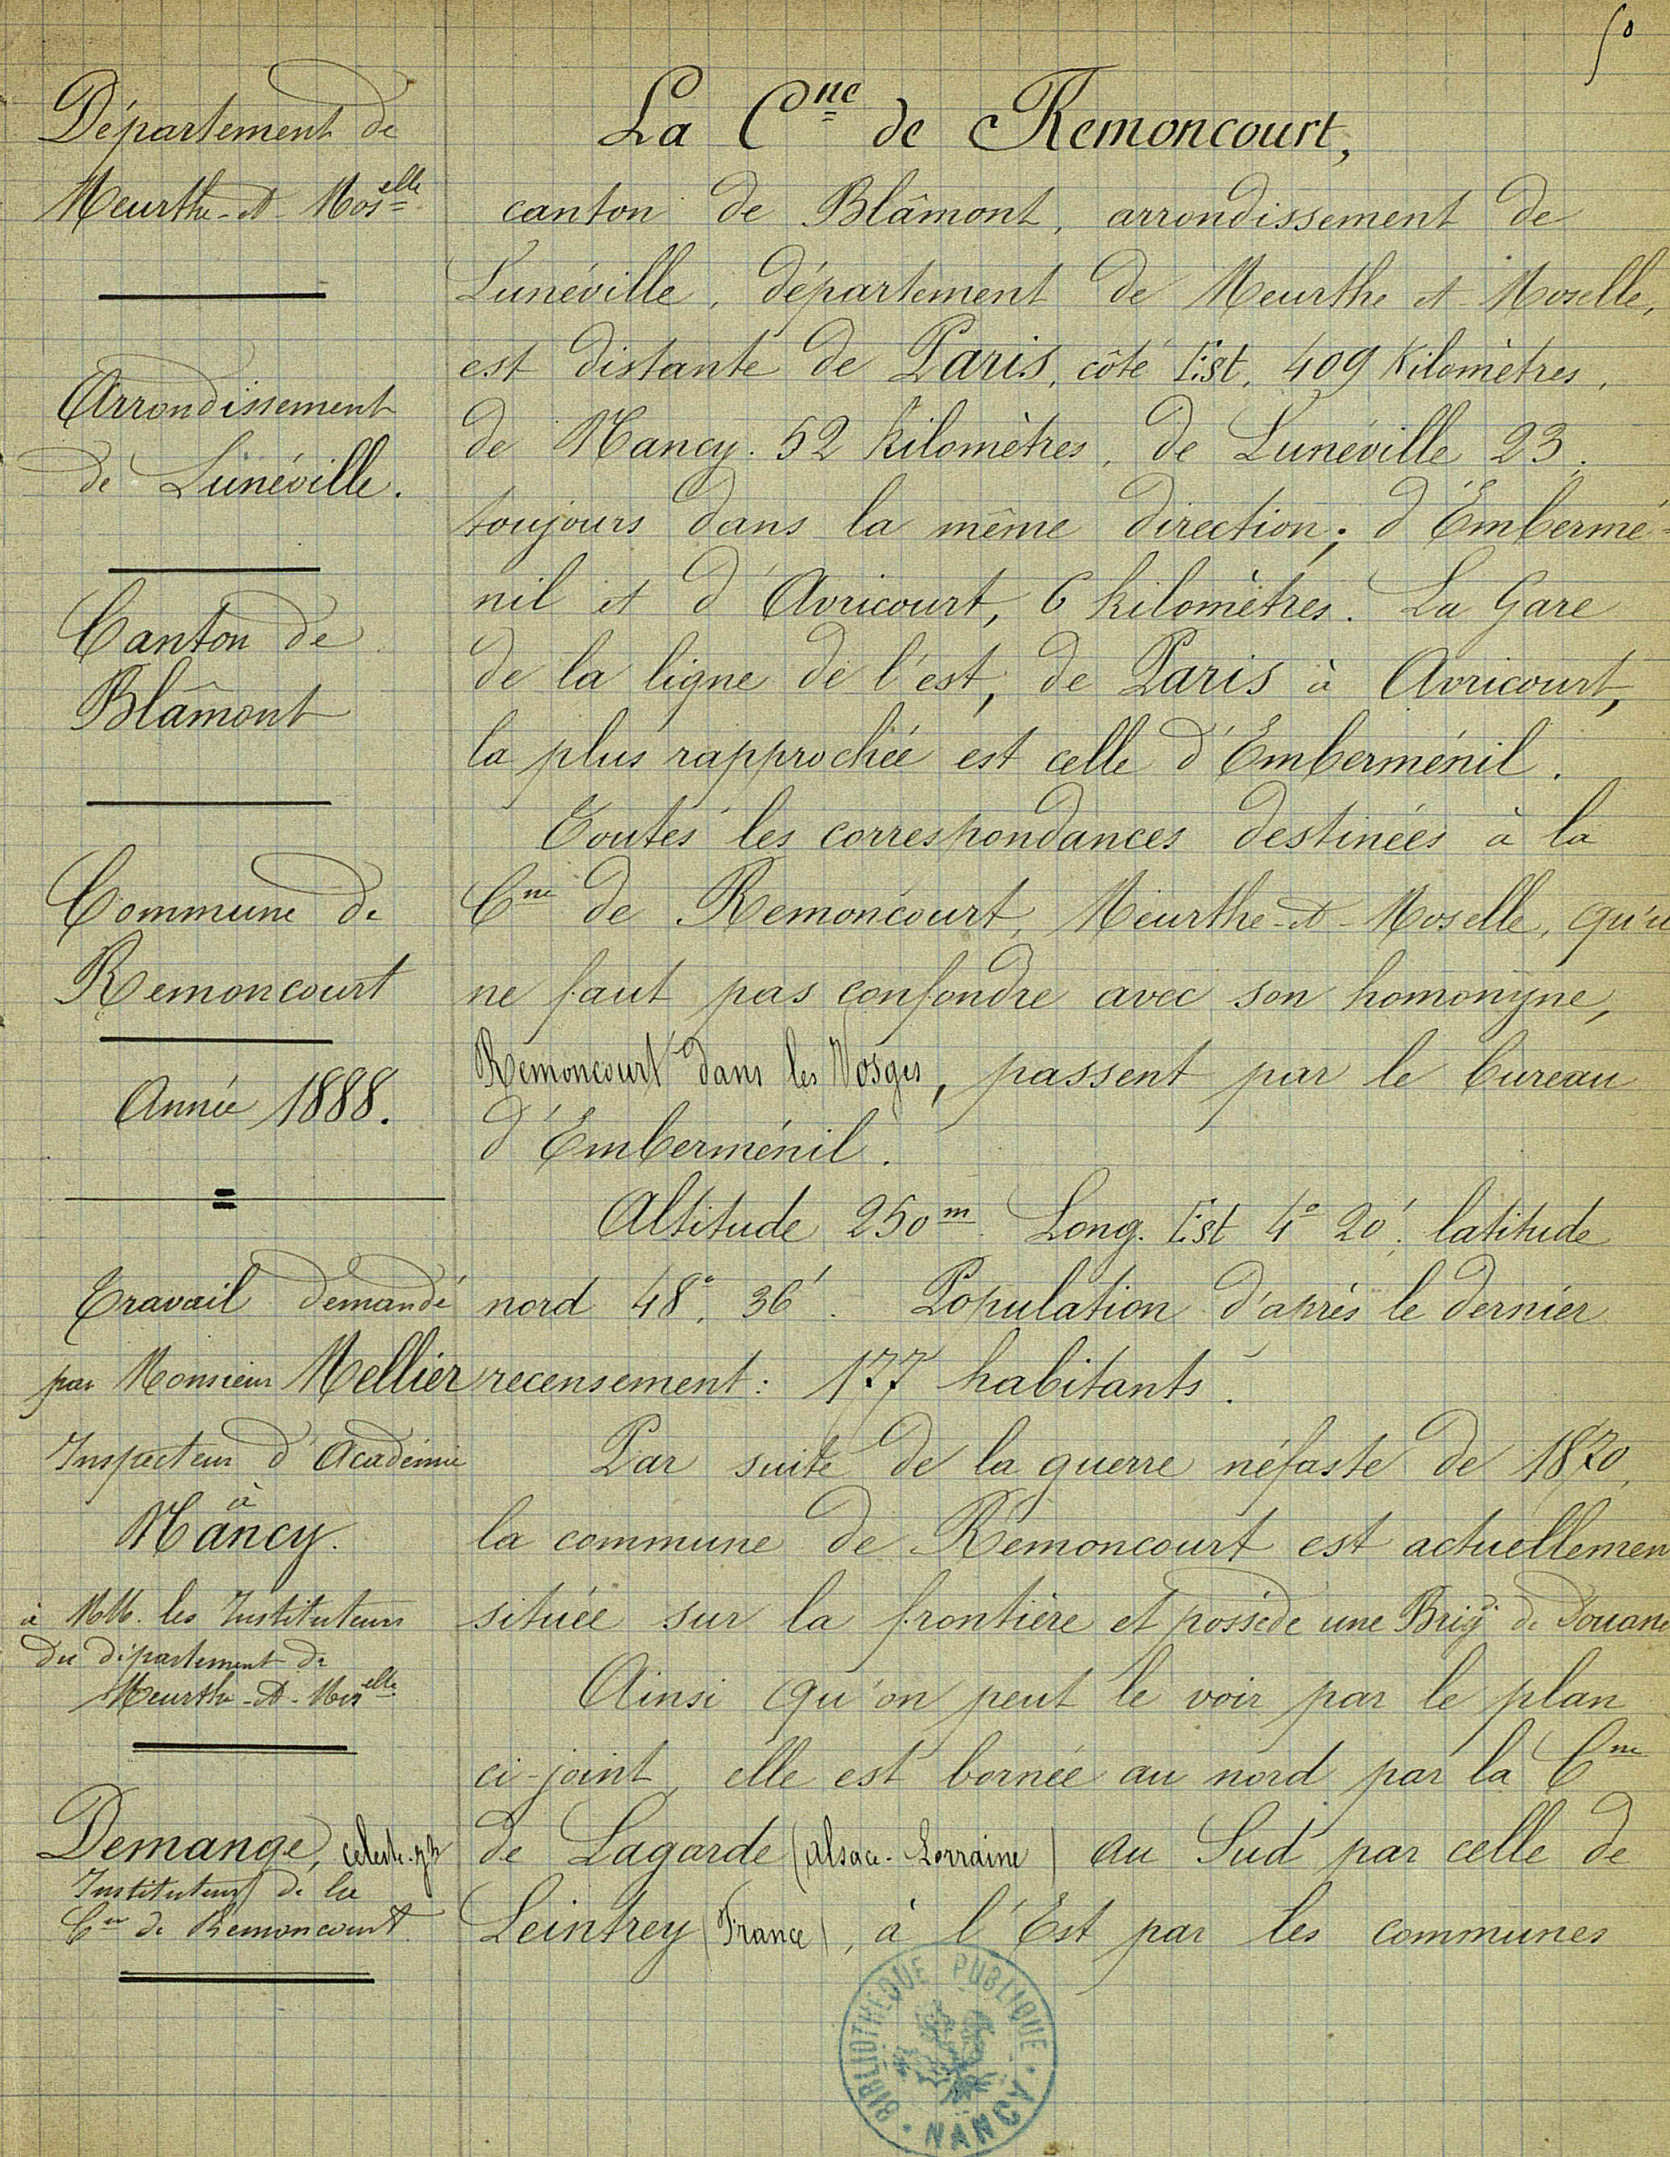 50
Département de
Meurthe-et-Mos^elle
Arrondissement
de Lunéville.
Canton de
Blâmont
Commune de
Remoncourt
Année 1888.
Travail demandé
par Monsieur Mellier
Inspecteur d'Académie
à
Nancy.
à MM. les Instituteurs
du département de
Meurthe-et-Mos^elle
Demange, Céleste
Instituteur de la
C^ne de Remoncourt
La C^ne de Remoncourt,
canton de Blâmont, arrondissement de
Lunéville, département de Meurthe et Moselle,
est distante de Paris, côté Est, 409 Kilomètres,
de Nancy. 52 Kilomètres, de Lunéville 23.
toujours dans la même direction; d'Embermé-
nil et d'Avricourt, 6 kilomètres. La Gare
de la ligne de l'est, de Paris à Avricourt,
la plus rapprochée est celle d'Emberménil.
Toutes les correspondances destinées à la
C^ne de Remoncourt, Meurthe-et-Moselle, qu'il
ne faut pas confondre avec son homonyne,
Remoncourt dans les Vosges, passent par le bureau
d'Emberménil.
Altitude 250^m. Long. Est 4° 20', latitude
nord 48°, 36'. Population d'après le dernier
recensement: 177 habitants.
Par suite de la guerre néfaste de 1870,
la commune de Remoncourt est actuellemen
située sur la frontière et possède une Brig. de Douane
Ainsi qu'on peut le voir par le plan
ci-joint, elle est bornée au nord par la C^ne
de Lagarde (Alsace-Lorraine) au Sud par celle de
Leintrey (France), à l'Est par les communes
BIBLIOTHEQUE PUBLIQUE
NANCY